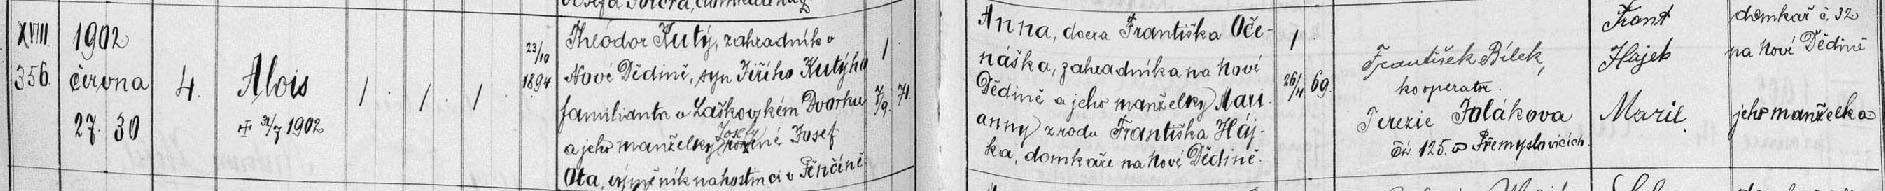 XVIII
356.
1902
června
27. 30
4.
Alois
III 31/7 1902
1
1
1
23/10
1894
Theodor Kutý, zahradník v
Nové Dědině, syn Jiřího Kutýho
familianta v Laškovském Dvorku
a jeho manželky Josef
Ota, výměník na hostinci v Pěnčíně
1
7/9. 71.
Anna, dcera Františka Oče-
náška, zahradníka na Nové
Dědině a jeho manželky Mari-
anny zrodu Františka Háj-
ka, domkáře na Nové Dědině.
1
26/4 69.
František Bílek,
kooperator.
Terezie Polákova
čís 125. v Přemyslovicích
Frant
Hájek
Marie.
domkař č. 32
na Nové Dědině
jeho manželka